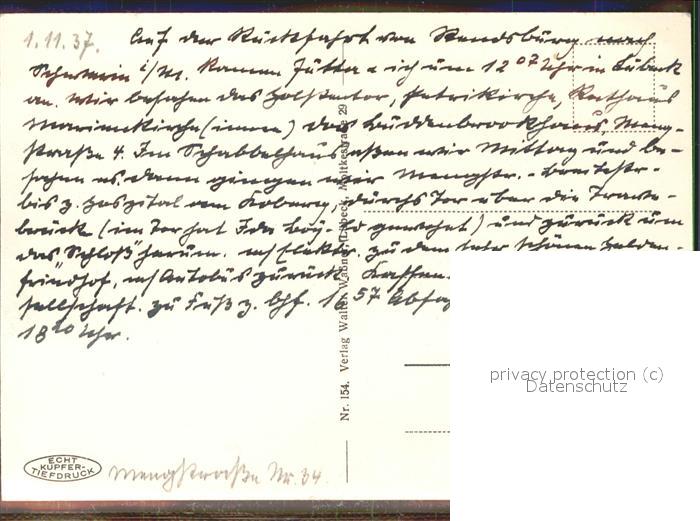 1.11.37. Auf der Rückfahrt von Rendsburg nach
Schwerin i/M. kamen Jutta u ich um 12 07 Uhr in Lübeck
an. Wir besahen das Holstentor, Petrikirche, Rathaus
Marienkirche (innen) das Buddenbrookhaus, Meng-
straße 4. Im Schabbelhaus aßen wir Mittag und be-
sahen es, dann gingen wir Mengstr. - Breitestr. -
bis z. Hospital am Koberg, durchs Tor über die Trave-
brück (im Tor hat Ida Boy-Ed gewohnt) und zurück um
das "Schloß" herum. m/ Elektr. zu dem sehr schönen Helden-
friedhof, m/ Autobus zurück. Kaffee
sellschaft. zu Fuß z. Bhf. 57 Abfa
18 20 Uhr.
Nr. 154. Verlag Walter Waßner, Lübeck, Moltkestraße 29
ECHT
KUPFER-
TIEFDRUCK
Mengstraße Nr. 34
privacy protection (c)
Datenschutz